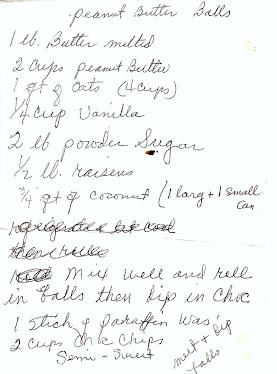 peanut Butter Balls
1 lb. Butter melted
2 Cups peanut Butter
1 qt of Oats (4 cups)
1/4 Cup Vanilla
2 lb powder Sugar
1/2 lb. raisens
3/4 qt of coconut (1 larg + 1 Small
Can
Mix well and roll
in balls then dip in Choc
1 Stick of paraffin Wax
2 Cups Choc Chips
Semi-Sweet
melt + dip
balls